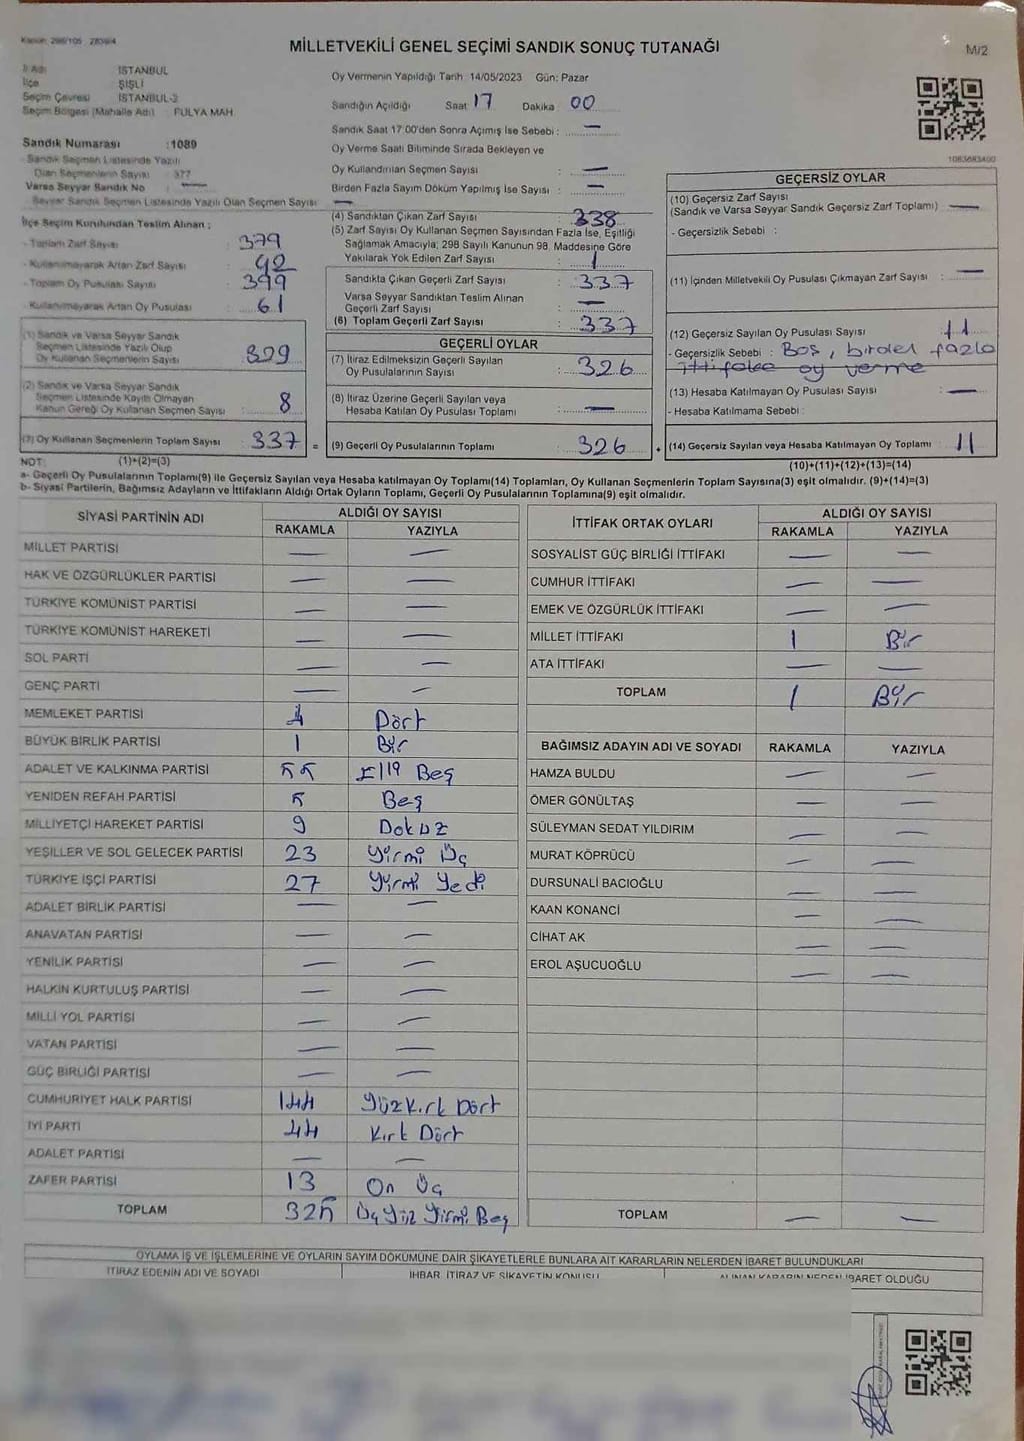 Kanun: 298/105 2839/4
MİLLETVEKİLİ GENEL SEÇİMİ SANDIK SONUÇ TUTANAĞI
M/2
İl Adı : İSTANBUL
İlçe : ŞİŞLİ
Seçim Çevresi : İSTANBUL-2
Seçim Bölgesi (Mahalle Adı) : FULYA MAH.
Oy Vermenin Yapıldığı Tarih 14/05/2023 Gün: Pazar
Sandığın Açıldığı Saat 17 Dakika 00
Sandık Saat 17:00'den Sonra Açımış İse Sebebi : —
Oy Verme Saati Bitiminde Sırada Bekleyen ve
Oy Kullandırılan Seçmen Sayısı : —
Birden Fazla Sayım Döküm Yapılmış İse Sayısı : —
1083683400
Sandık Numarası : 1089
- Sandık Seçmen Listesinde Yazılı
Olan Seçmenlerin Sayısı : 377
Varsa Seyyar Sandık No : —
- Seyyar Sandık Seçmen Listesinde Yazılı Olan Seçmen Sayısı : —
İlçe Seçim Kurulundan Teslim Alınan ;
- Toplam Zarf Sayısı : 379
- Kullanılmayarak Artan Zarf Sayısı : 42
- Toplam Oy Pusulası Sayısı : 399
- Kullanılmayarak Artan Oy Pusulası : 61
(1) Sandık ve Varsa Seyyar Sandık
Seçmen Listesinde Yazılı Olup
Oy Kullanan Seçmenlerin Sayısı : 329
(2) Sandık ve Varsa Seyyar Sandık
Seçmen Listesinde Kayıtlı Olmayan
Kanun Gereği Oy Kullanan Seçmen Sayısı : 8
(3) Oy Kullanan Seçmenlerin Toplam Sayısı : 337 =
(4) Sandıktan Çıkan Zarf Sayısı : 338
(5) Zarf Sayısı Oy Kullanan Seçmen Sayısından Fazla İse, Eşitliği
Sağlamak Amacıyla; 298 Sayılı Kanunun 98. Maddesine Göre
Yakılarak Yok Edilen Zarf Sayısı : 1
Sandıkta Çıkan Geçerli Zarf Sayısı : 337
Varsa Seyyar Sandıktan Teslim Alınan
Geçerli Zarf Sayısı : —
(6) Toplam Geçerli Zarf Sayısı : 337
GEÇERLİ OYLAR
(7) İtiraz Edilmeksizin Geçerli Sayılan
Oy Pusulalarının Sayısı : 326
(8) İtiraz Üzerine Geçerli Sayılan veya
Hesaba Katılan Oy Pusulası Toplamı : —
(9) Geçerli Oy Pusulalarının Toplamı : 326 +
GEÇERSİZ OYLAR
(10) Geçersiz Zarf Sayısı
(Sandık ve Varsa Seyyar Sandık Geçersiz Zarf Toplamı) : —
- Geçersizlik Sebebi :
(11) İçinden Milletvekili Oy Pusulası Çıkmayan Zarf Sayısı : —
(12) Geçersiz Sayılan Oy Pusulası Sayısı : 11
- Geçersizlik Sebebi : Boş, birden fazla
ittifaka oy verme
(13) Hesaba Katılmayan Oy Pusulası Sayısı : —
- Hesaba Katılmama Sebebi :
(14) Geçersiz Sayılan veya Hesaba Katılmayan Oy Toplamı : 11
NOT: (1)+(2)=(3)
(10)+(11)+(12)+(13)=(14)
a- Geçerli Oy Pusulalarının Toplamı(9) ile Geçersiz Sayılan veya Hesaba katılmayan Oy Toplamı(14) Toplamları, Oy Kullanan Seçmenlerin Toplam Sayısına(3) eşit olmalıdır. (9)+(14)=(3)
b- Siyasi Partilerin, Bağımsız Adayların ve İttifakların Aldığı Ortak Oyların Toplamı, Geçerli Oy Pusulalarının Toplamına(9) eşit olmalıdır.
SİYASİ PARTİNİN ADI
ALDIĞI OY SAYISI
RAKAMLA YAZIYLA
MİLLET PARTİSİ — —
HAK VE ÖZGÜRLÜKLER PARTİSİ — —
TÜRKİYE KOMÜNİST PARTİSİ — —
TÜRKİYE KOMÜNİST HAREKETİ — —
SOL PARTİ — —
GENÇ PARTİ — —
MEMLEKET PARTİSİ 4 Dört
BÜYÜK BİRLİK PARTİSİ 1 Bir
ADALET VE KALKINMA PARTİSİ 55 Elli Beş
YENİDEN REFAH PARTİSİ 5 Beş
MİLLİYETÇİ HAREKET PARTİSİ 9 Dokuz
YEŞİLLER VE SOL GELECEK PARTİSİ 23 Yirmi Üç
TÜRKİYE İŞÇİ PARTİSİ 27 Yirmi Yedi
ADALET BİRLİK PARTİSİ — —
ANAVATAN PARTİSİ — —
YENİLİK PARTİSİ — —
HALKIN KURTULUŞ PARTİSİ — —
MİLLİ YOL PARTİSİ — —
VATAN PARTİSİ — —
GÜÇ BİRLİĞİ PARTİSİ — —
CUMHURİYET HALK PARTİSİ 144 Yüz Kırk Dört
İYİ PARTİ 44 Kırk Dört
ADALET PARTİSİ — —
ZAFER PARTİSİ 13 On Üç
TOPLAM 325 Üç Yüz Yirmi Beş
İTTİFAK ORTAK OYLARI
ALDIĞI OY SAYISI
RAKAMLA YAZIYLA
SOSYALİST GÜÇ BİRLİĞİ İTTİFAKI — —
CUMHUR İTTİFAKI — —
EMEK VE ÖZGÜRLÜK İTTİFAKI — —
MİLLET İTTİFAKI 1 Bir
ATA İTTİFAKI — —
TOPLAM 1 Bir
BAĞIMSIZ ADAYIN ADI VE SOYADI RAKAMLA YAZIYLA
HAMZA BULDU — —
ÖMER GÖNÜLTAŞ — —
SÜLEYMAN SEDAT YILDIRIM — —
MURAT KÖPRÜCÜ — —
DURSUNALİ BACIOĞLU — —
KAAN KONANCİ — —
CİHAT AK — —
EROL AŞUCUOĞLU — —
TOPLAM — —
OYLAMA İŞ VE İŞLEMLERİNE VE OYLARIN SAYIM DÖKÜMÜNE DAİR ŞİKAYETLERLE BUNLARA AİT KARARLARIN NELERDEN İBARET BULUNDUKLARI
İTİRAZ EDENİN ADI VE SOYADI
İHBAR, İTİRAZ VE ŞİKAYETİN KONUSU
ALINAN KARARIN NEDEN İBARET OLDUĞU